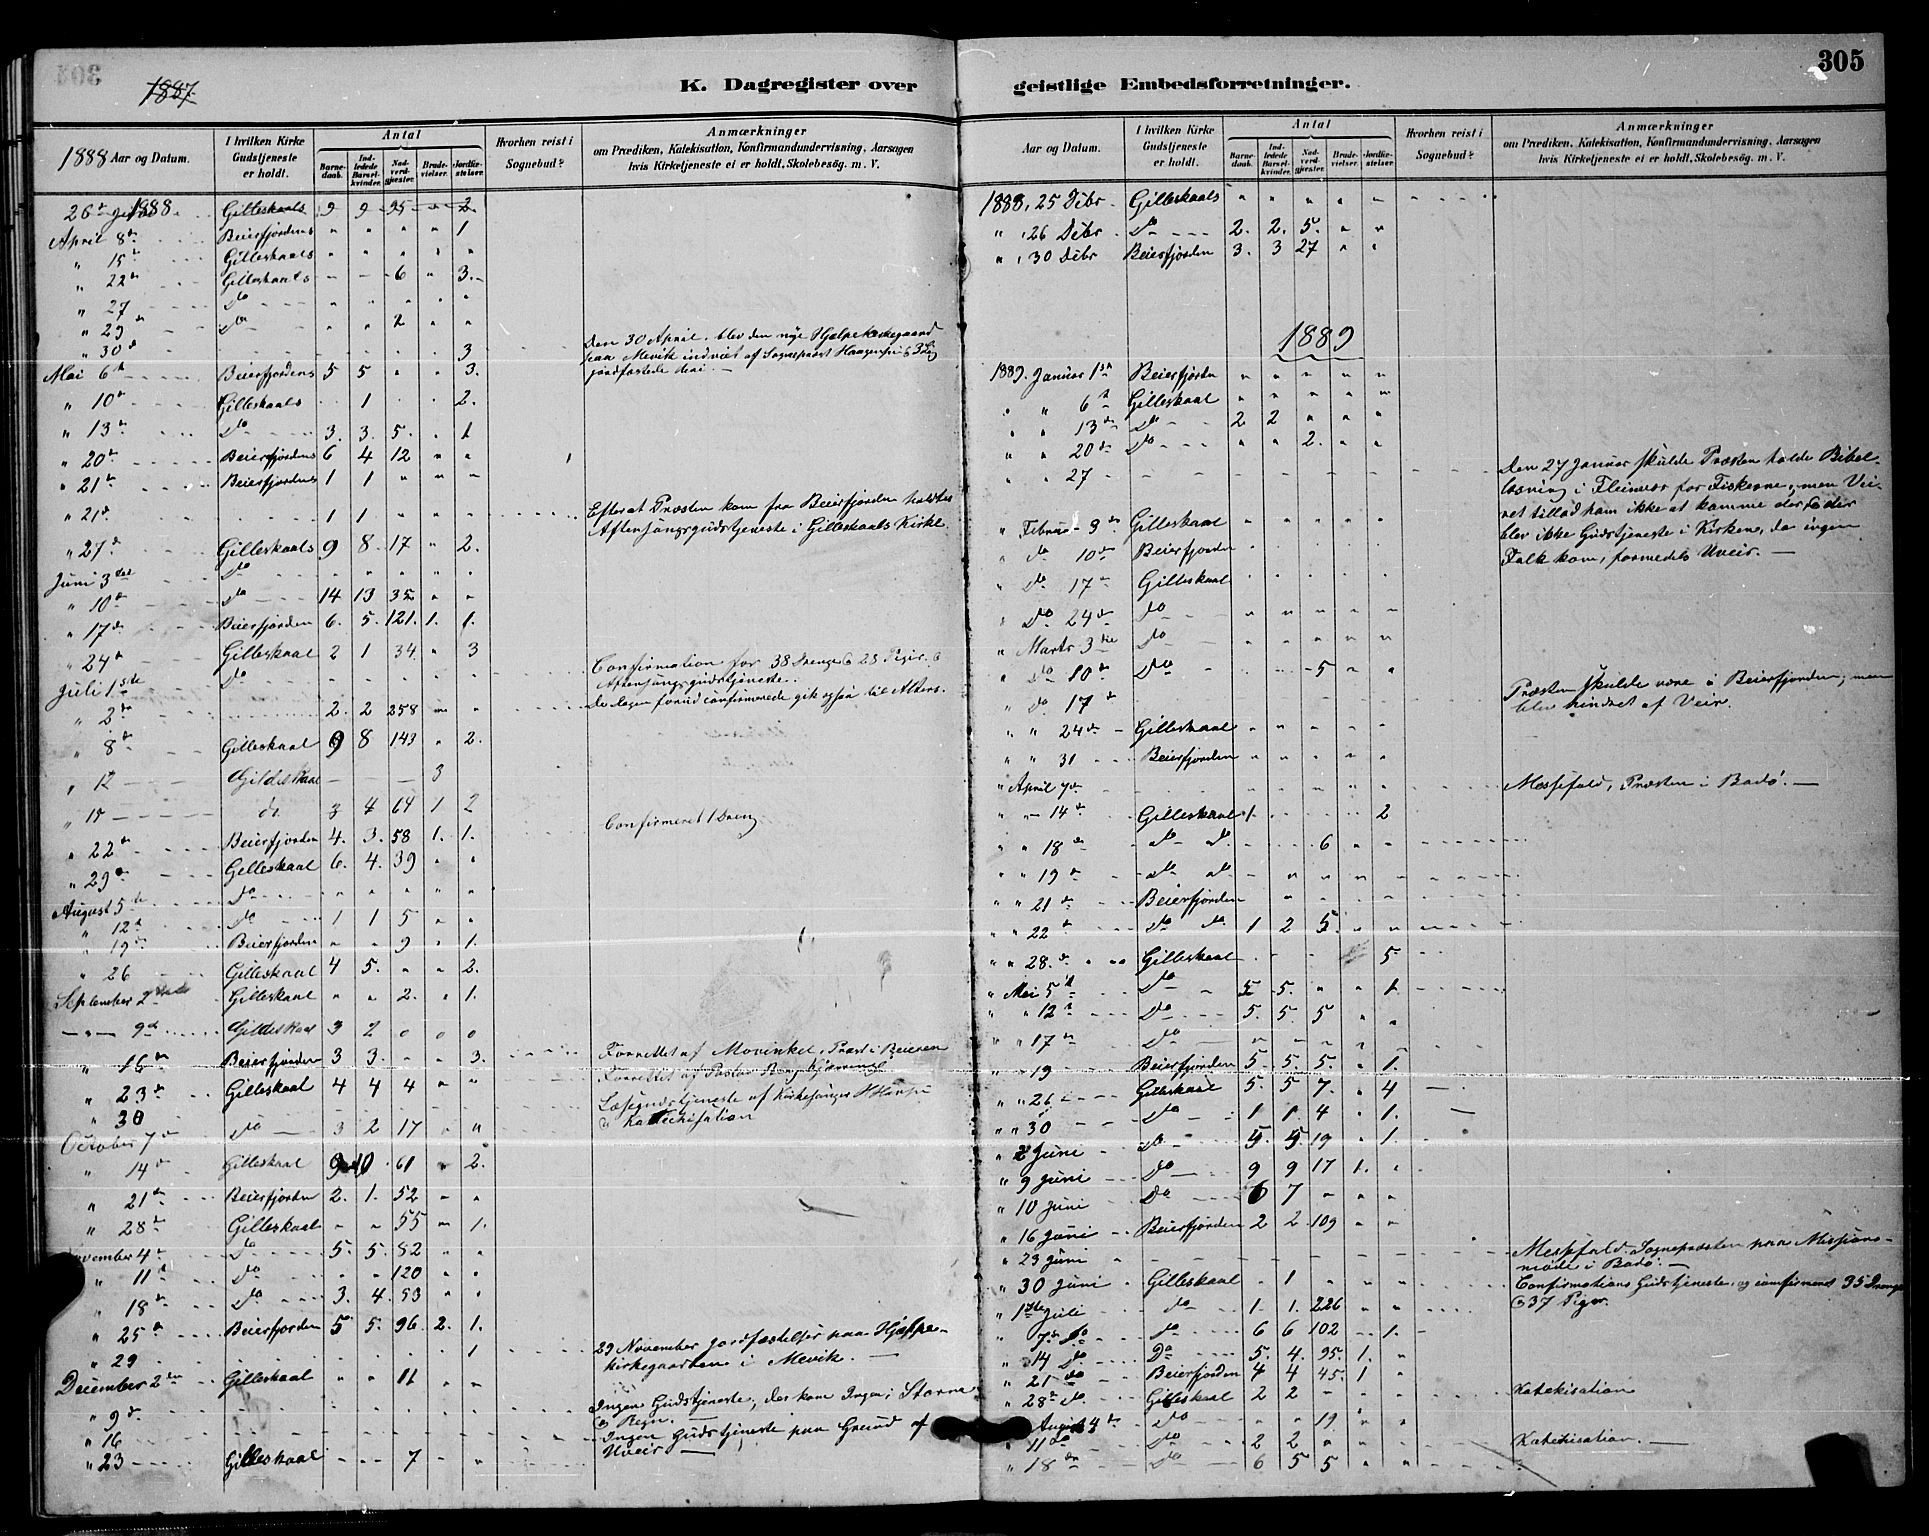 1887.
K. Dagregister over
1888 Aar og Datum.
I hvilken Kirke Gudstjeneste er holdt.
Antal
Barnedaab.
Indledede Barselkvinder.
Nadverdgjæster.
Brudevielser.
Jordfæstelser.
Hvorhen reist i Sognebud?
Anmærkninger
om Prædiken, Katekisation, Konfirmandundervisning, Aarsagen
hvis Kirketjeneste ei er holdt, Skolebesøg. m. V.
1888. Gilleskaals 9 9 95 " 2.
April 8de Beierfjordens " " " " 1
" 15de Gilleskaals " " " " "
" 22de Gilleskaals - - 6 " 3.
" 27 do " " " " "
" 29de do " " 2 " "
" 30d 3 Den 30 April. blev den nye Hjælpekirkegaard
paa Mevik indviet af Sogneprest
jordfæstede deri. —
Mai 6te Beierfjordens 5 5 " " 3.
" 10de Gilleskaals 1 2.
" 13de do 3. 3. 5. " 1
" 20de Beierfjordens 6 4 12 " "
" 21de Beierfjordens 1 1 " " "
" 21d 1 1 " " " Efterat Præsten kom fra Beierfjorden holdtes
Aftensangsgudstjeneste i Gilleskaals Kirke.
" 27d Gilleskaals 9 8 17 " 2.
Juni 3die do " " " " "
" 10de do 14 13 35 " "
" 17de Beierfjorden 6. 5. 121. 1. 1.
" 24de Gilleskaal 2 1 34 " 3
Juli 1ste do Confirmation for 38 Drenge & 28 Piger. &
Aftensangsgudstjeneste.
" 2de 2. 2 258 " " De dagen forud confirmerede gik ogsaa til Alters.
" 8de Gilleskaal 9 8 143 " 2.
" 12 Gildeskaal - - - 3
" 15 do 3 4 64 1 2
Confirmeret 1 Dreng
" 22de Beierfjorden 4. 3. 58 1. 1.
" 29de Gilleskaal 6. 4. 39 " "
August 5te do " " " " "
" 12te do 1 1 5 " "
" 19de Beierfjorden " " 9 " 1.
" 26 Gilleskaal 4 5. " " 2.
September 2 Gilleskaal " " 2. " 1.
— " — 9de Gildeskaal 3 2 0 0 0
" 16de Beierfjorden 3 3. " " 3. Forrettet af Movinkel. Præst i Beieren
" 23de Gilleskaal 4 4 4 " " Forrettet af Pastor
" 30 Læsegudstjeneste af Kirkesanger H Hansen
October 7de do 3 2 17 " " Katechisation
" 14de Gilleskaal 9 10 61 " 2.
" 21de Beierfjorden 2. 1. 52 " "
" 28de Gilleskaal " " 55 " 1.
November 4de do 5. 5. 82 " "
" 11te do " " 120 " "
" 18de do 3. 4. 53 " "
" 25de Beierfjorden 5 5. 96 2. 1.
" 29 1 29 November Jordfæstelser paa Hjælpe-
kirkegaarden i Mevik. —
December 2den Gilleskaal " " 11 " "
" 9de Ingen Gudstjeneste, der kom Ingen; Storm
& Regn. —
" 16 Ingen Gudstjeneste paa Grund af
Uveir —
" 23 Gilleskaal - - 7 - "
305
geistlige Embedsforretninger.
Aar og Datum.
I hvilken Kirke Gudstjeneste er holdt.
Antal
Barnedaab.
Indledede Barselkvinder.
Nadverdgjæster.
Brudevielser.
Jordfæstelser.
Hvorhen reist i Sognebud?
Anmærkninger
om Prædiken, Katekisation, Konfirmandundervisning, Aarsagen
hvis Kirketjeneste ei er holdt, Skolebesøg. m. V.
1888, 25 Dibr. Gilleskaals " " " " "
" 26 Dibr. do 2. 2. 5. " "
" 30 Dibr Beierfjorden 3. 3 27 " "
1889
1889. Januar 1ste Beierfjorden " " " " "
" " 6te Gilleskaal " " " " "
" " 13de do 2 2 " " "
" " 20de do " " 2. " "
" " 27 Den 27 Januar skulde Præsten holde Bibel-
læsning i Fleinvær for Fiskerne, men Vei-
ret tillod ham ikke at komme der & der
blev ikke Gudstjeneste i Kirkene, da ingen
Folk kom, formedels Uveir. —
" Februar 3de Gilleskaal " " " " "
" do 10de Beierfjorden " " " " "
" do 17de Gilleskaal " " " " "
" do 24de do " " " " "
" Marts 3die do " " " " "
" do 10de do " " 5 " "
" do 17de Præsten skulde være i Beierfjorden; men
blev hindret af Veir.
" " 24de Gilleskaal " " " "
" " 31 Beierfjorden " " " "
" April 7de Messefald, Præsten i Bodø. —
" " 14de Gilleskaal 1 2
" " 18de do 6 " "
" " 19de do " " " "
" " 21de Beierfjorden " " " "
" " 22de do do 1 2 5. " "
" " 28. Gilleskaal 5
" Mai 5te do 5 5. " " 1.
" " 12te do 5. 5. 5 " "
" " 17de do " " " " "
" " 19 Beierfjorden 5. 5. 5. " 1.
" " 26 Gilleskaal 5. 5 7. " 4
" " 30 do 1 1. 4 " 1.
" 2 Juni do 5. 5. 19 " 1.
" 9 Juni do 9 9 17 1. "
" 10 Juni do 6 7 " " "
" 16 Juni Beierfjorden 2 2. 109 " "
" 23 Juni Messefald. Sognepræsten paa Missions-
møde i Bodø. —
" 30 Juni Gilleskaal " 1 " " " Confirmations Gudstjeneste, og confirmeret 35 Drenge
& 37 Piger.
" 1ste Juli do 1. 1. 226 " "
" 7de do do 6 6 102 " 1.
" 14 do do 5. 4. 95. 1. "
" 21 do Beierfjorden 4 4 45. 1 "
" 28de do Gilleskaal 2 2 " " " Katekisation
August 4de do " " 19 " "
" 11te do 2 2 " " " Katekisation. —
" 18de do 6 5 5 " "